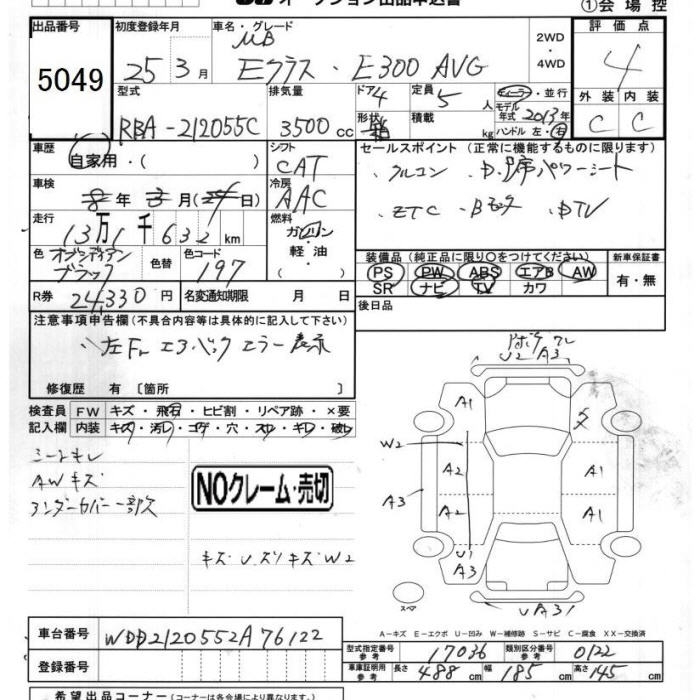 オークション出品申込書 ①会場控
出品番号 初度登録年月 車名・グレード 評価点
5049 25年3月 MB Eクラス・E300 AVG 2WD・4WD 4
型式 排気量 ドア 4 定員 5人 ディーラー・並行 外装 内装
RBA-212055C 3500cc 形状 箱 積載 kg モデル年式 2013年 ハンドル 左・右 C C
車歴 シフト セールスポイント (正常に機能するものに限ります)
自家用・( ) CAT ・クルコン ・D・P席パワーシート
車検 冷房
8年3月(24日) AAC ・ETC ・Bモニタ ・DTV
走行 燃料
13万1千632km ガソリン・軽油・
色 オブシディアンブラック 色替 色コード 197 装備品 (純正品に限り○をつけてください) 新車保証書
PS PW ABS エアB AW 有・無
SR ナビ TV カワ
R券 24,330円 名変通知期限 月 日 後日品
注意事項申告欄 (不具合内容等は具体的に記入して下さい)
・左Fr エアバック エラー表示
修復歴 有 〔箇所 〕
検査員 FW キズ・飛石・ヒビ割・リペア跡・×要
記入欄 内装 キズ・汚レ・コゲ・穴・スレ・キレ・破レ
シートキレ
AWキズ
アンダーカバー一部欠
NOクレーム・売切
キズ・U・ズリキズ・W2
U2 A3
A1
W2
A2 A1
A3
A2 A1
U1
A3
スペア UA31
A-キズ E-エクボ U-凹み W-補修跡 S-サビ C-腐食 XX-交換済
車台番号 WDD2120552A76122
型式指定番号 参考 17036 類別区分番号 参考 0122
登録番号 車庫証明用 参考 長さ 488cm 幅 185cm 高さ 145cm
希望出品コーナー (コーナーは各会場により異なります)